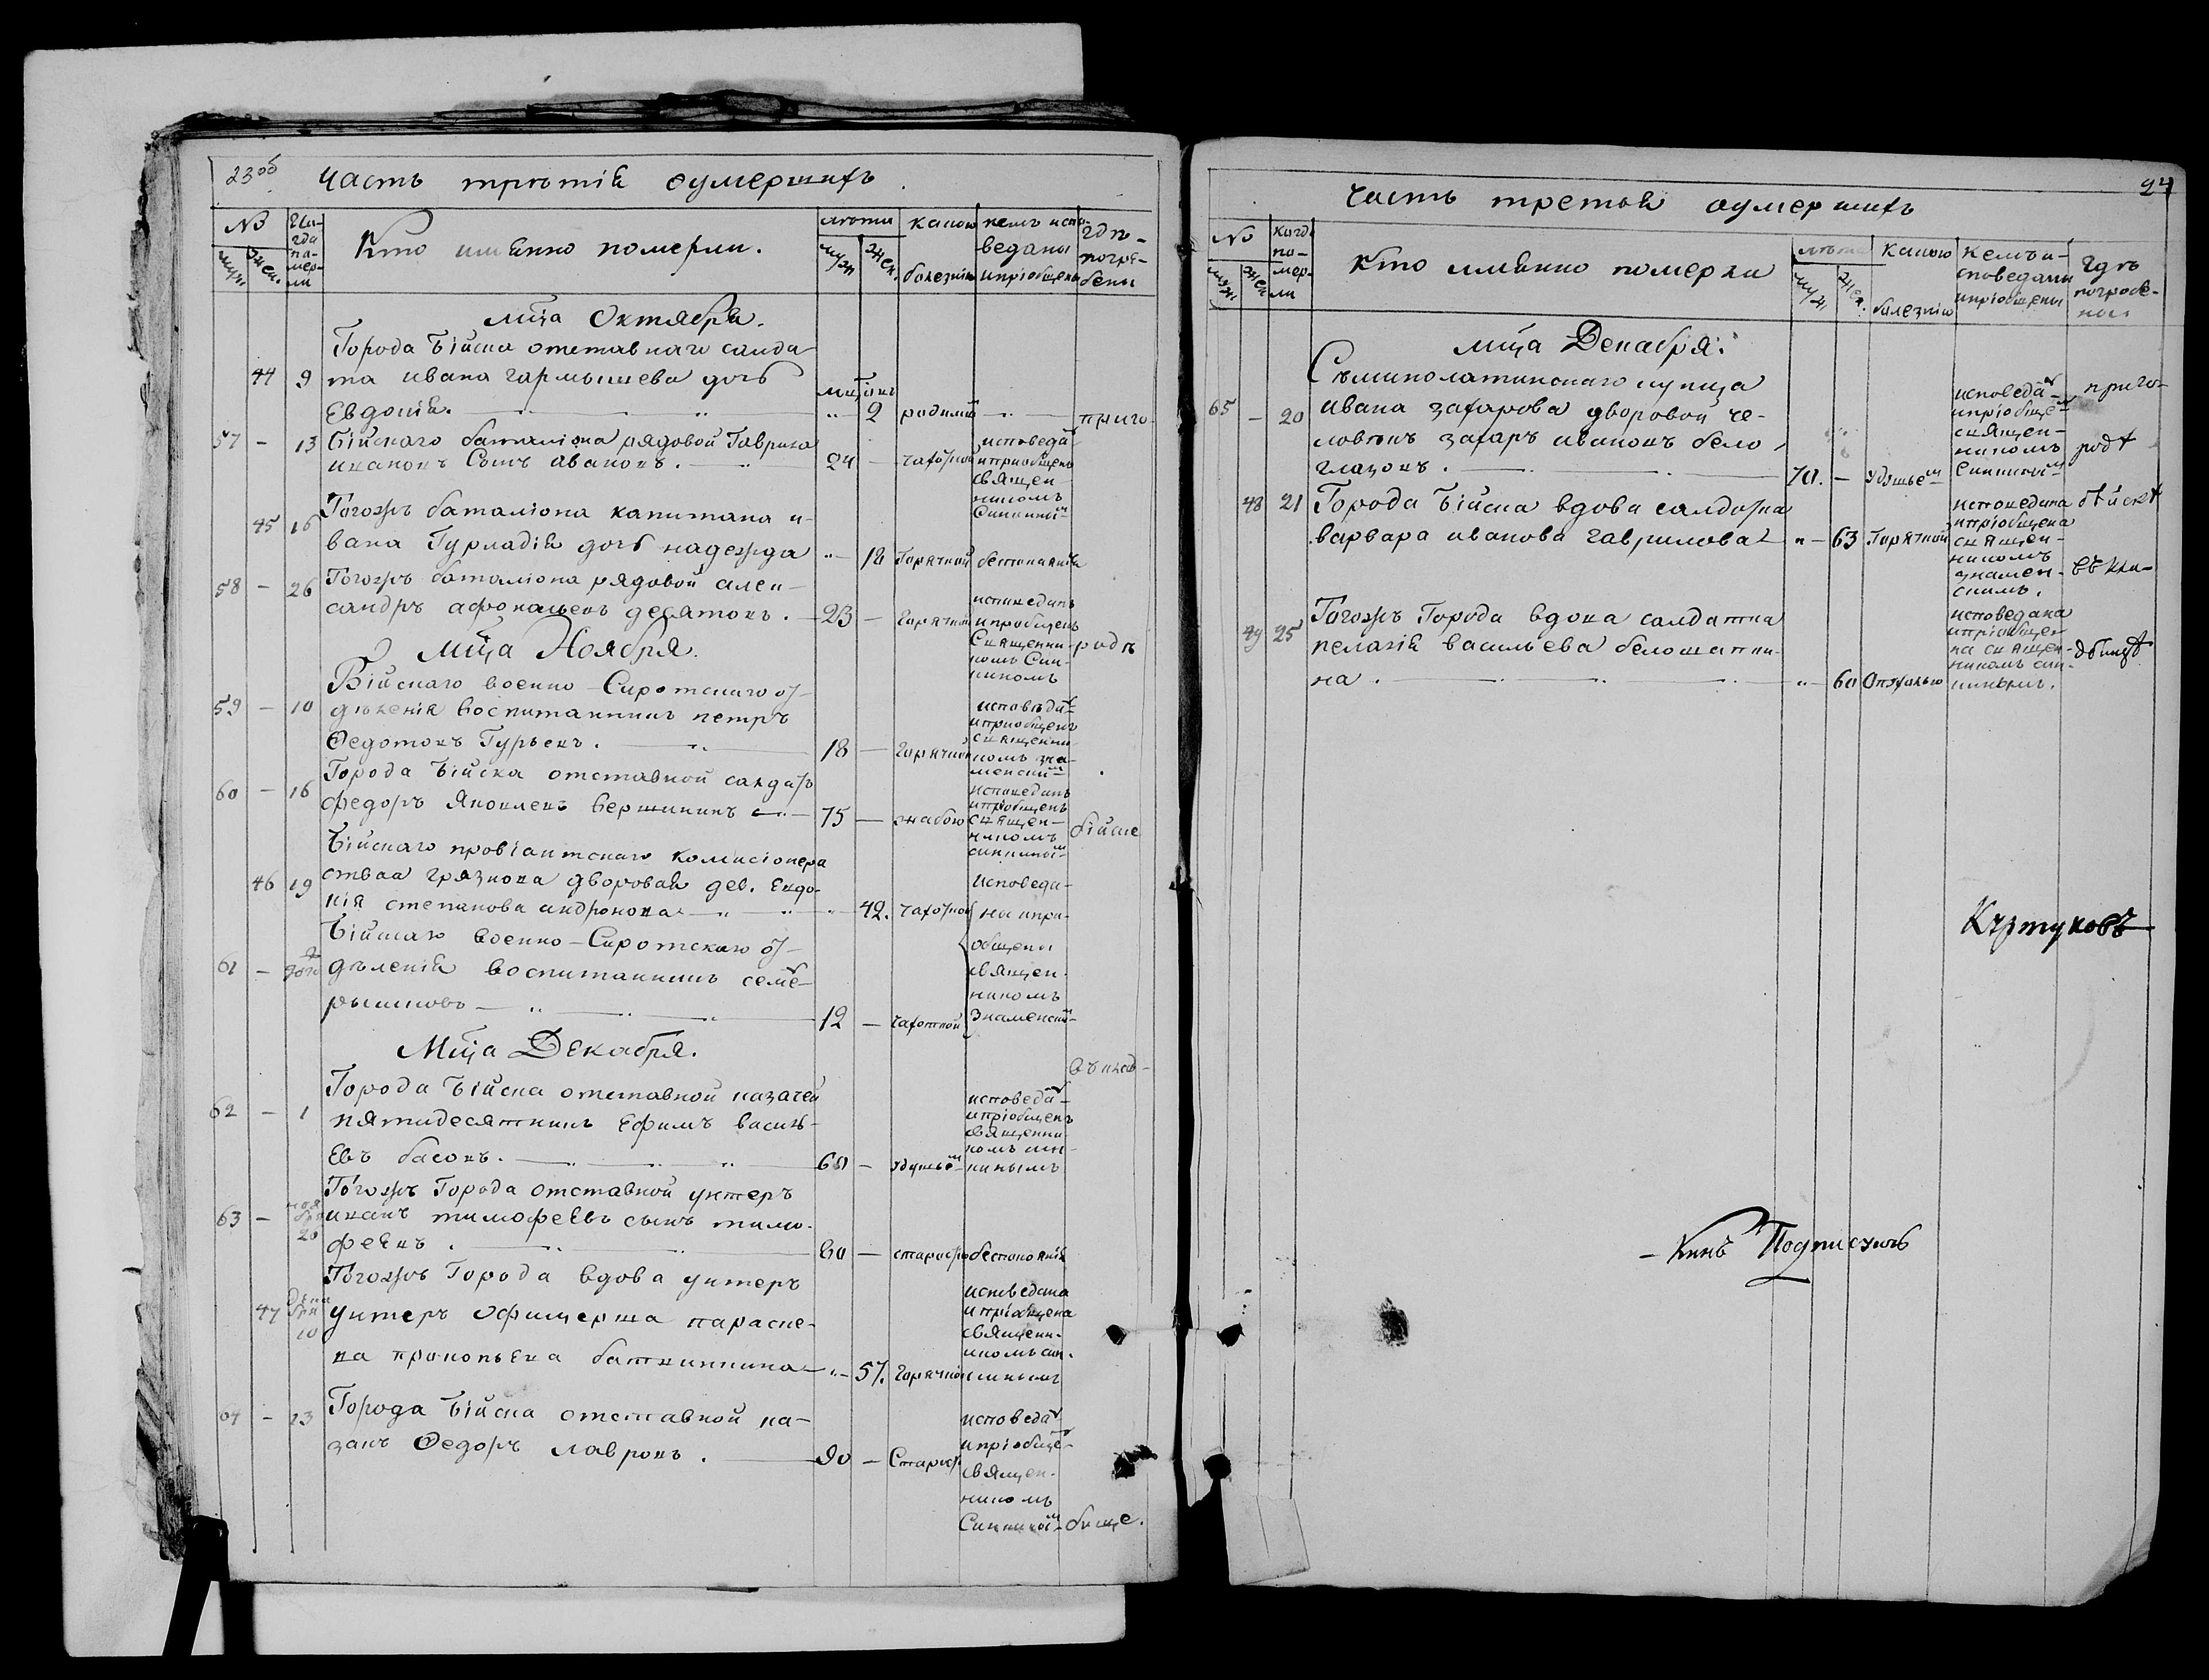 23об
Часть третія оумершихъ
№
муж.
жен.
Когда
по-
мер-
ли
Кто имѣнно померли.
лѣта
муж
жен.
какою
болезнію
кемъ испо-
веданы
и приобщены
гдѣ
погре-
бены
мца Октября.
Города Бійска отставнаго салда-
44 9 та ивана гармышева дочь
мцовъ
Евдокія. 2 родимой
приго-
57 - 13 Бійскаго баталіона рядовой Гаврила
ивановъ Сынъ ивановъ. 24 - чахотной
исповеда
и приобщенъ
священ-
никомъ
Синкины
45 16 Тогожъ баталіона капитана и-
вана Гурладія дочь надежда 18 Горячкой безпокаянія
58 - 26 Тогожъ баталіона рядовой алек-
сандръ афонасьевъ десятовъ. 23 - Горячкой
исповеданъ
и приобщенъ
Священни-
комъ Син-
кинымъ
родѣ
Мца Ноября.
Бійскаго военно-Сиротскаго о/-
59 - 10 дѣленія воспитанникъ петръ
Федотовъ Гурьевъ. 18 - Горячкой
исповѣда
и приобщенъ
священни-
комъ зна-
менски
Города Бійска отставной салдатъ
60 - 16 федоръ Яковлевъ вершининъ 75 - жабою
исповеданъ
и приобщенъ
священ-
никомъ
синкины
бійске
Бійскаго провіантскаго комисіонера
46 19 ства грязнова дворовая дев. Евдо-
кія степанова андронова 42. чахоткой
Исповеда-
ны и при-
общены
священ-
никомъ
Знаменски
Бійскаго военно-Сиротскаго о/-
61 - дѣленія воспитанникъ семе
рышковъ 12 - чахоткой
Мца Декабря.
въ клад-
Города Бійска отставной казачей
62 - 1 пятидесятникъ Ефимъ василь-
Евъ басовъ. 60 - удушье
исповеда
и пріобщенъ
священни-
комъ син-
кинымъ
Тогожъ Города отставной унтеръ
63 - ноября 20 иванъ тимофеевъ сынъ тимо-
феевъ. 60 - старостью безпокоянія
Тогожъ Города вдова унтеръ
47 Декабря 10 унтеръ Офицерша параске-
ва прокопьева баткинина 57. Горячкой
исповедана
и приобщена
священ-
никомъ син-
кинымъ
64 - 13 Города Бійска отставной ка-
закъ Федоръ лавровъ. 90 - Старос/.
исповеда
и пріобще
священ-
никомъ
Синкины
бище.
24
Часть третья оумершихъ
№
муж
жен
Когда
по-
мер-
ли
Кто имѣнно померли
лѣта
муж
жен.
Какою
болезнію
Кемъ и-
споведаны
и приобщены
Гдѣ
погребе-
ны
мца Декабря.
Сѣмиполатинскаго купца
65 - 20 ивана захарова дворовой че-
ловѣкъ захаръ ивановъ бело-
глазовъ. 70. - Удушье
исповеда
и приобще
священ-
никомъ
Синкины
приго-
родѣ
48 21 Города Бійска вдова салда/ка
варвара иванова гаврилова 63 Горячкой
исповедана
и приобщена
священ-
никомъ
знамен-
скимъ.
бійскѣ
въ кла-
49 25 Тогожъ Города вдова салдатка
пелагія васильева белошапки-
на. 60 Опухолью
исповедана
и пріобще-
на священ-
никомъ син-
кинымъ.
дбищѣ
Кернъ Подписалъ